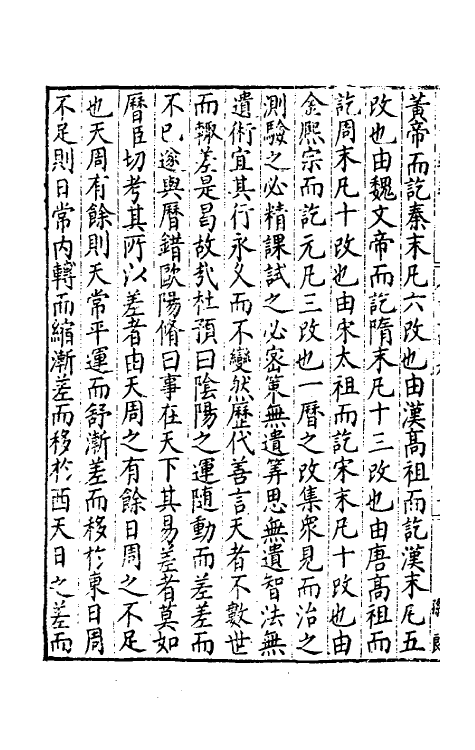 黃帝而訖秦末凡六改也由漢高祖而訖漢末凡五
改也由魏文帝而訖隋末凡十三改也由唐高祖而
訖周末凡十改也由宋太祖而訖宋末凡十改也由
金熈宗而訖元凡三改也一曆之改集衆見而治之
測驗之必精課試之必宻策無遺筭思無遺智法無
遺術宜其行永久而不變然歴代善言天者不數世
而輙差是曷故哉杜預曰陰陽之運随動而差差而
不已遂與曆錯歐陽脩曰事在天下其易差者莫如
曆臣切考其所以差者由天周之有餘日周之不足
也天周有餘則天常平運而舒漸差而移於東日周
不足則日常内轉而縮漸差而移於西天日之差而